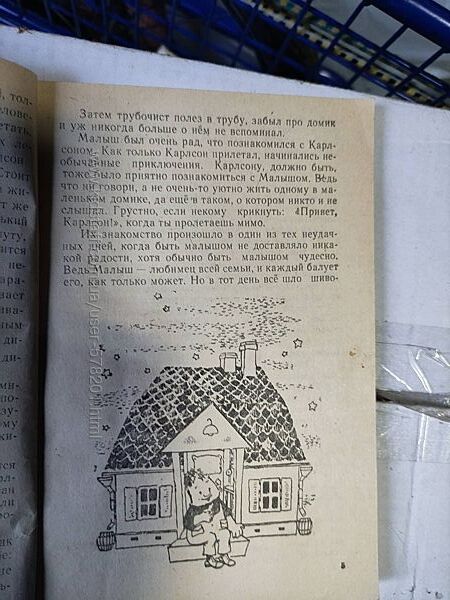 Затем трубочист полез в трубу, забыл про домик
и уж никогда больше о нём не вспоминал.
Малыш был очень рад, что познакомился с Карл-
соном. Как только Карлсон прилетал, начинались не-
обычайные приключения. Карлсону, должно быть,
тоже было приятно познакомиться с Малышом. Ведь
что ни говори, а не очень-то уютно жить одному в ма-
леньком домике, да ещё в таком, о котором никто и не
слышал. Грустно, если некому крикнуть: «Привет,
Карлсон!», когда ты пролетаешь мимо.
Их знакомство произошло в один из тех неудач-
ных дней, когда быть малышом не доставляло ника-
кой радости, хотя обычно быть малышом чудесно.
Ведь Малыш — любимец всей семьи, и каждый балует
его, как только может. Но в тот день всё шло шиво-
5